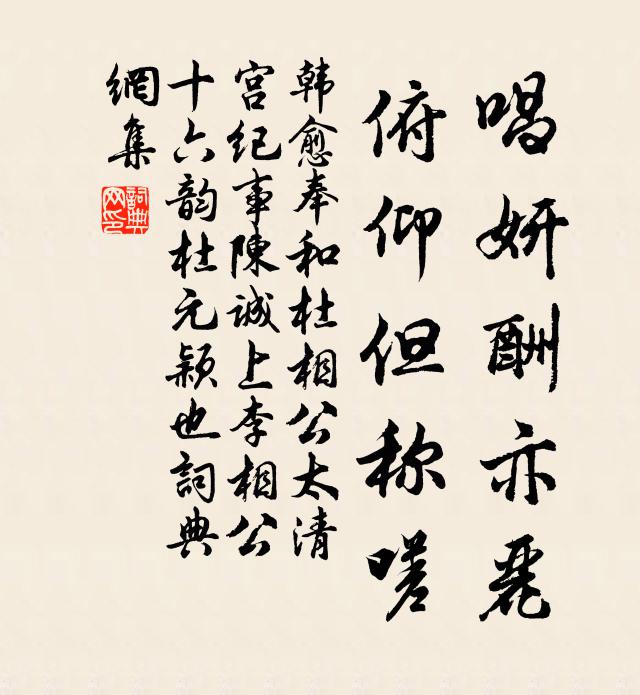 唱妍酬亦麗
俯仰但称嗟
韩愈奉和杜相公太清
宫纪事陳誠上李相公
十六韵杜元颖也詞典
網集
詞典網印